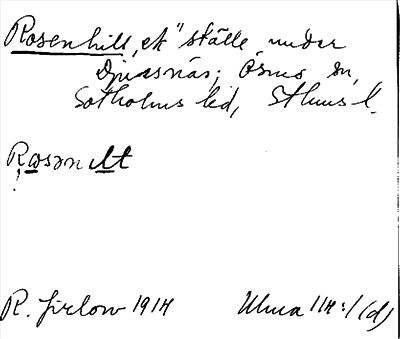 Rosenhill, ek" ställe under
Djursnäs; Ösmo sn,
Sotholms hd, Sthms l.
Rosənilt
R. Jirlow 1914 Ulma 114:1 (d)